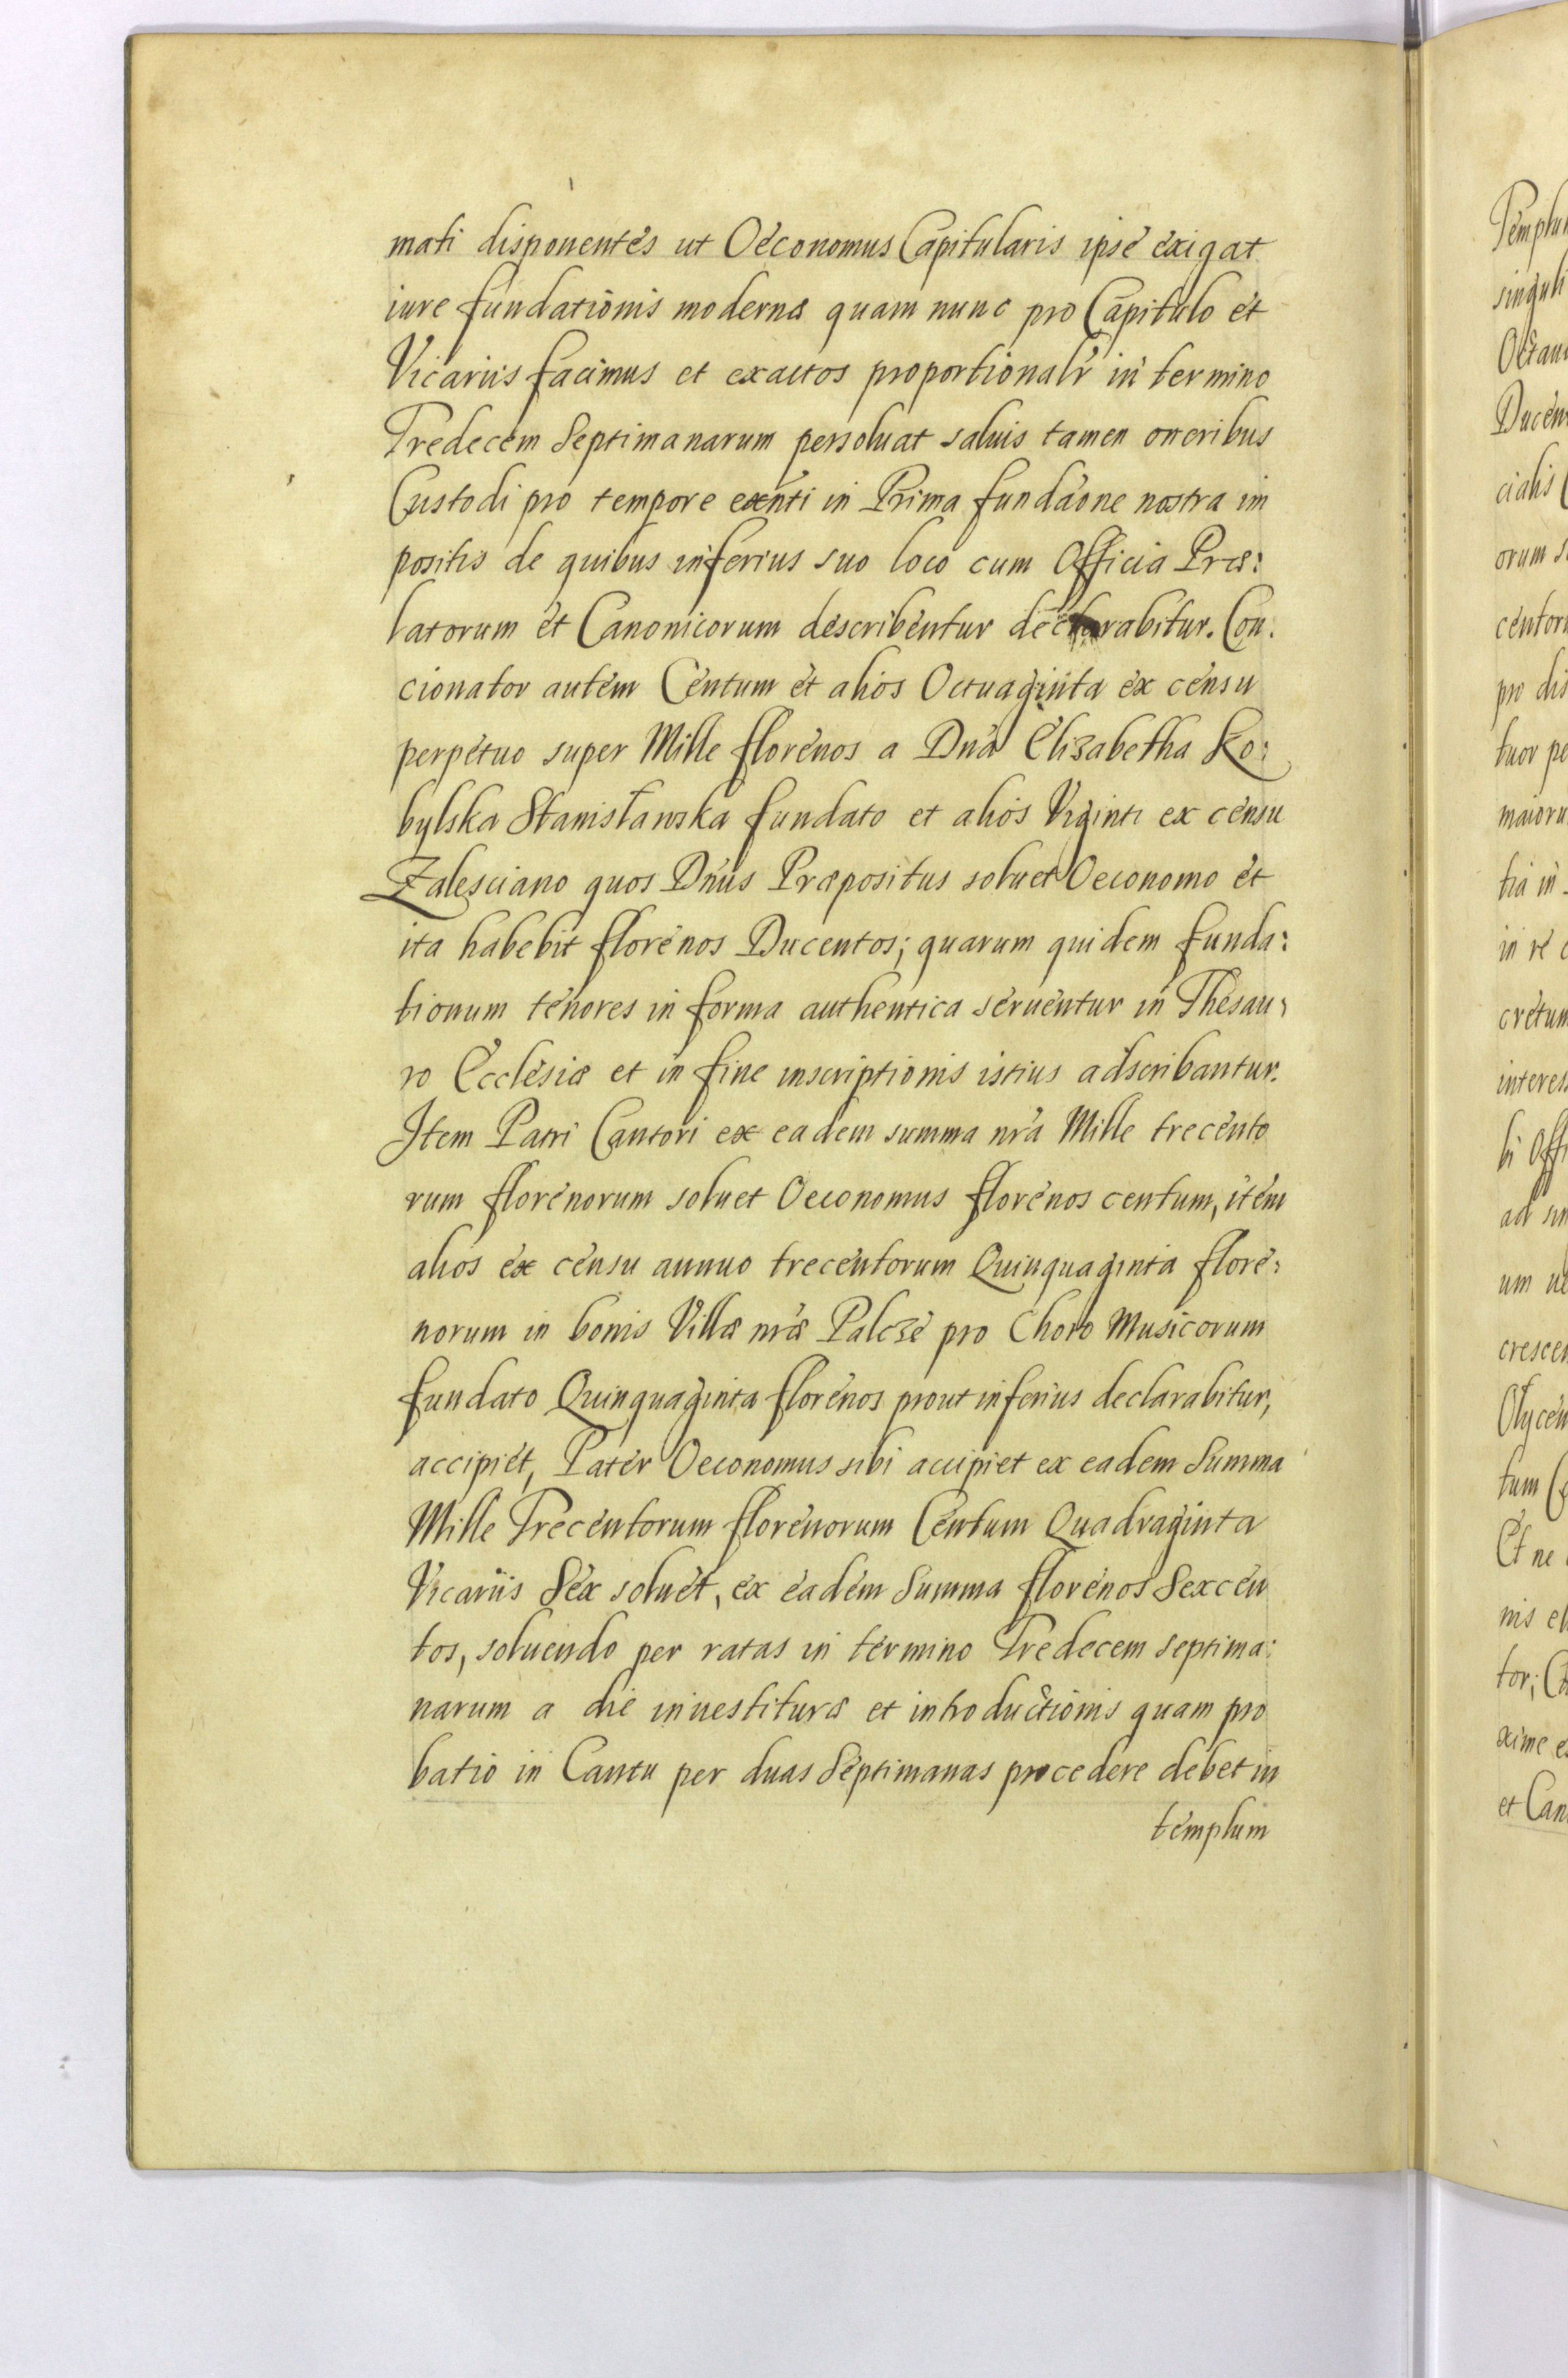 mati disponentes ut Oeconomus Capitularis ipse exigat
iure fundationis modernæ quam nunc pro Capitulo et
Vicariis facimus et exactos proportionalr in termino
Tredecem Septimanarum persoluat saluis tamen oneribus
Custodi pro tempore exnti in Prima fundaone nostra im
positis de quibus inferius suo loco cum Officia Præ:
latorum et Canonicorum describentur declarabitur. Con:
cionator autem Centum et alios Octuaginta ex censu
perpetuo super Mille florenos a Dna Elizabetha Ko:
bylska Stanisławska fundato et alios Viginti ex censu
Zalesciano quos Dnus Præpositus soluet Oeconomo et
ita habebit florenos Ducentos; quarum quidem funda:
tionum tenores in forma authentica seruentur in Thesau:
ro Ecclesiæ et in fine inscriptionis istius adscribantur.
Item Patri Cantori ex eadem summa nra Mille trecento
rum florenorum soluet Oeconomus florenos centum, item
alios ex censu annuo trecentorum Quinquaginta flore:
norum in bonis Villæ nræ Palcze pro Choro Musicorum
fundato Quinquaginta florenos prout inferius declarabitur,
accipiet, Pater Oeconomus sibi accipiet ex eadem Summa
Mille Trecentorum florenorum Centum Quadraginta
Vicariis Sex soluet, ex eadem Summa florenos Sexcen
tos, soluendo per ratas in termino Tredecem septima:
narum a die inuestituræ et introductionis quam pro
batio in Cantu per duas Septimanas procedere debet in
templum